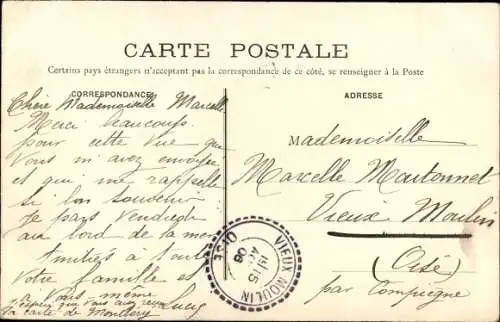 CARTE POSTALE
Certains pays étrangers n'acceptant pas la correspondance de ce côté, se renseigner à la Poste
CORRESPONDANCE
Chère Mademoiselle Marcelle
Merci beaucoup
pour cette vue que
vous m'avez envoyée
et qui me rappelle
si bon souvenir
Je pars Vendredi
au bord de la mer
Amitiés à toute
votre famille et
à vous même
Lucy
J'espère que vous avez reçu
la carte de Montlery
ADRESSE
Mademoiselle
Marcelle Moutonnet
Vieux Moulin
(Oise)
par Compiègne
VIEUX MOULIN
OISE
15
08